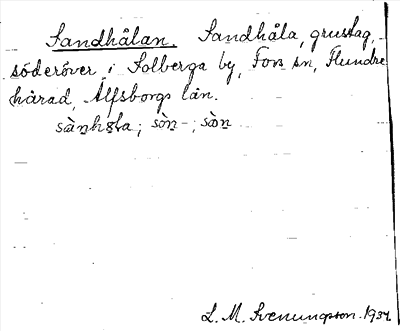 Sandhålan. Sandhåla, grustag,
söderöver i Solberga by, Fors sn, Flundre
härad, Älfsborgs län.
sàn̠hɷla; sòn̠-; sàn̠
L. M. Svenungsson. 1934